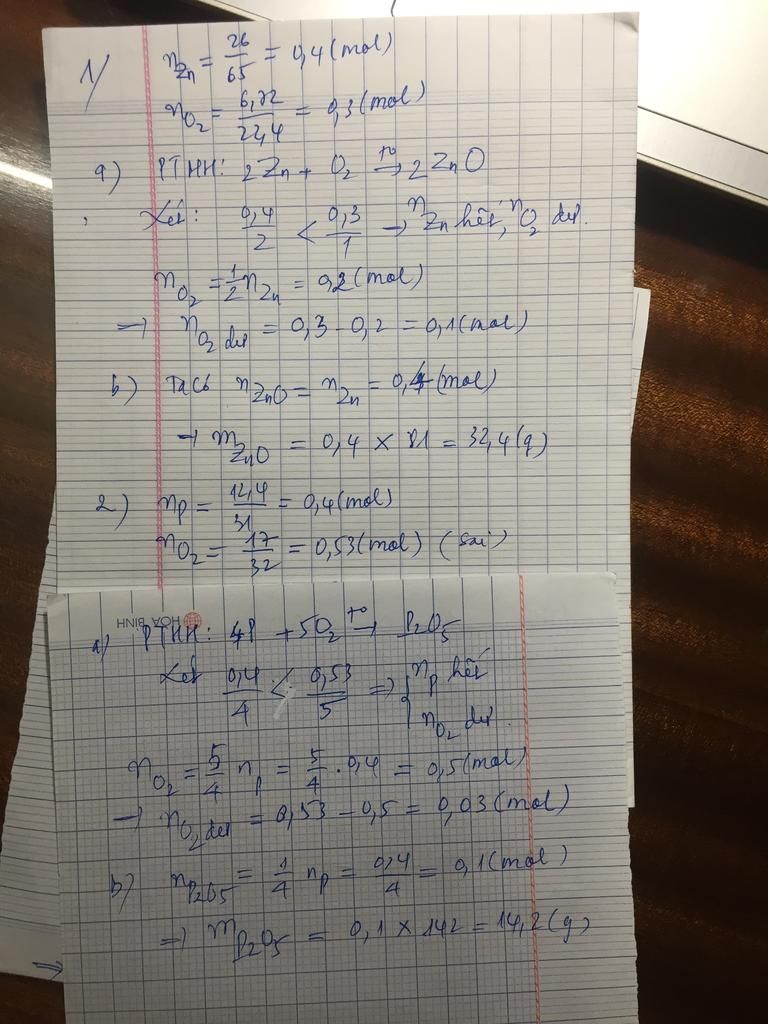 1/ nZn = 26/65 = 0,4 (mol)
nO2 = 6,72/22,4 = 0,3 (mol)
a) PTHH: 2Zn + O2 t°→ 2ZnO
Xét: 0,4/2 < 0,3/1 → nZn hết, nO2 dư.
nO2 = 1/2 nZn = 0,2 (mol)
→ nO2 dư = 0,3 - 0,2 = 0,1 (mol)
b) Ta có nZnO = nZn = 0,4 (mol)
→ mZnO = 0,4 × 81 = 32,4 (g)
2) nP = 12,4/31 = 0,4 (mol)
nO2 = 17/32 = 0,53 (mol) (sai)
HÒA BÌNH
a) PTHH: 4P + 5O2 t°→ P2O5
Xét 0,4/4 < 0,53/5 ⇒ { nP hết
nO2 dư.
nO2 = 5/4 nP = 5/4 . 0,4 = 0,5 (mol)
→ nO2 dư = 0,53 - 0,5 = 0,03 (mol)
b) nP2O5 = 1/4 nP = 0,4/4 = 0,1 (mol)
⇒ mP2O5 = 0,1 × 142 = 14,2 (g)